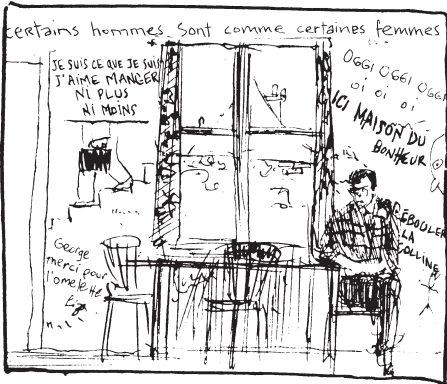 certains hommes sont comme certaines femmes
JE SUIS CE QUE JE SUIS
J'AIME MANGER
NI PLUS
NI MOINS
OGGI OGGI OGGI
OI OI OI
ICI MAISON DU
BONHEUR
DÉBOULER
LA
COLLINE
George
merci pour
l'omelette